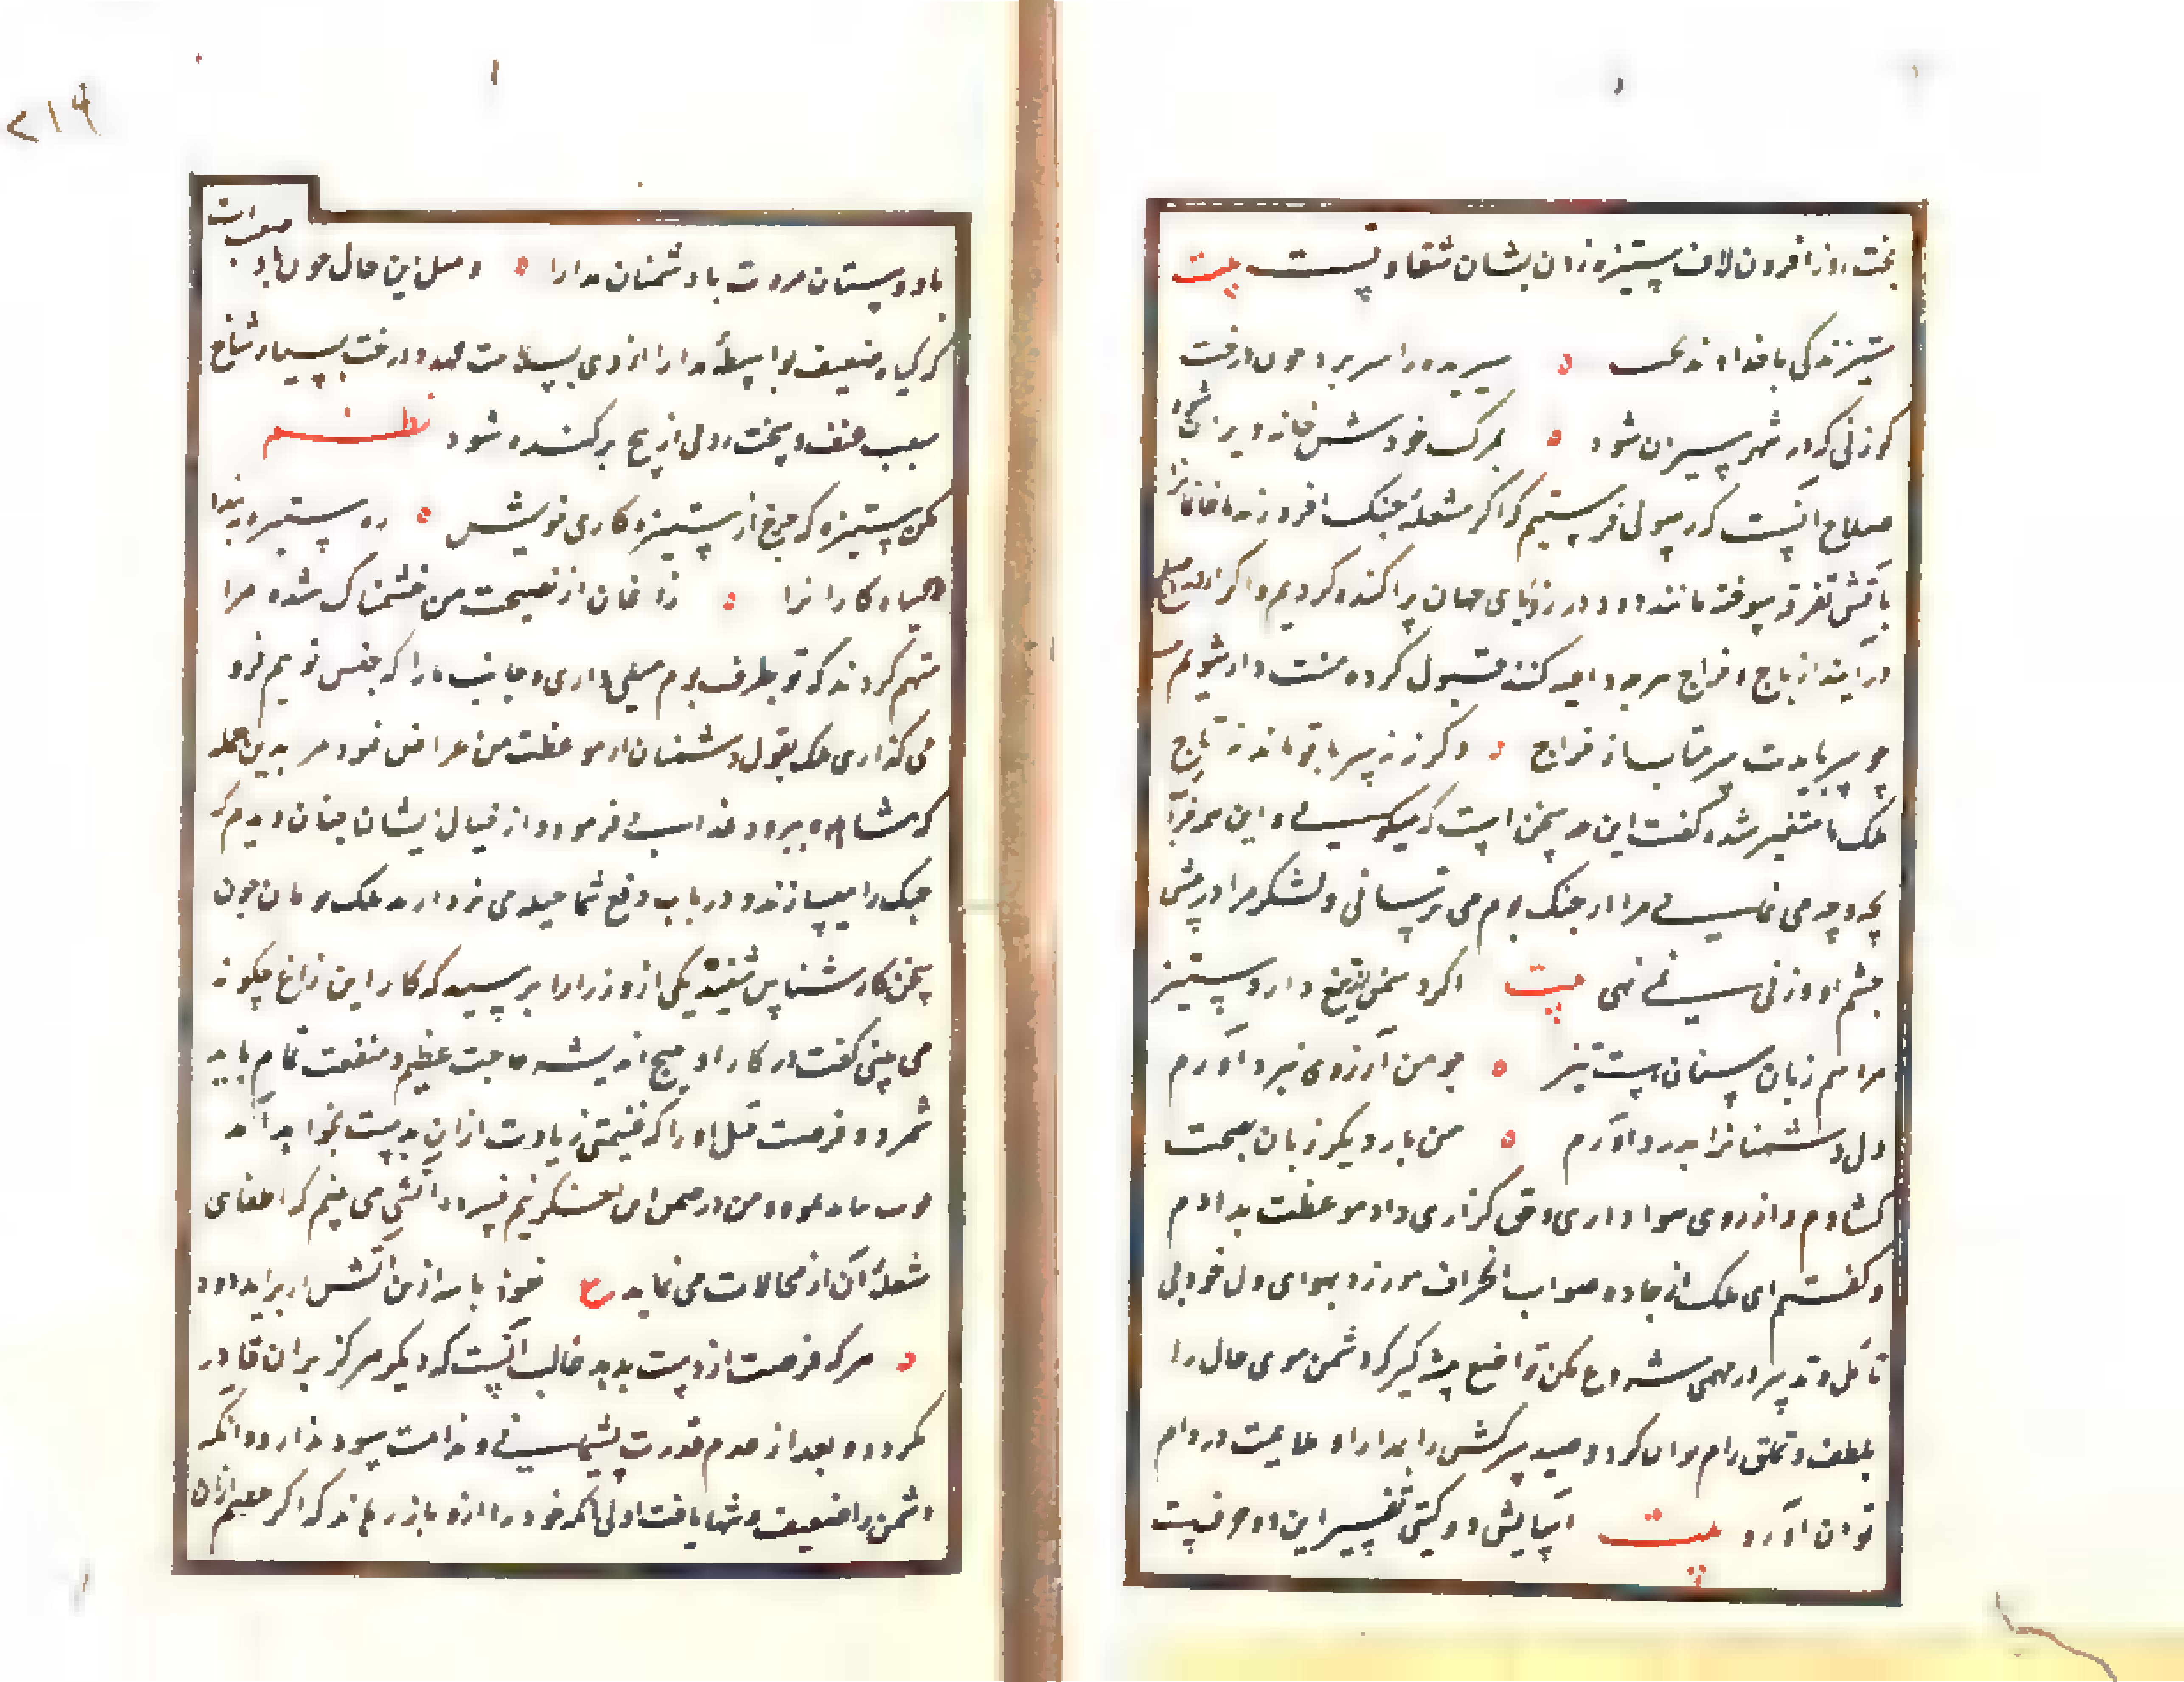 بخت روز افزون لاف ستیزه زدن نشان شقاوتست بیت
ستیزندگی با خداوند بخت ستیزنده را سر برد چون درخت
گوزنی که در شهر شیران شود بمرگ خودش خانه ویران شود
صلاح آنست که رسولی فرستیم که اگر مشعلهٔ جنگ افروزند ما خانمانرا
بآتش تفرقه سوخته مانند دود در زوایای جهان پراکنده کردیم و اگر از در صلح
درآیند از باج و خراج هرچه کنند قبول کرده منت دار شویم
چو سر بایدت سر متاب از خراج وگرنه نه سر با تو ماند نه تاج
ملک ما متغیر شده گفت این چه سخن است که میگویی و این چه
چه می نمایی مرا از جنگ بوم می ترسانی و لشکر مرا در پیش
چشم او وزنی نمی نهی بیت اگر دشمن تیغ دارد ستیز
مرا هم زبان سنان است تیز چو من آرزوی نبرد آورم
دل دشمنانرا بدرد آورم من بار دیگر زبان نصیحت
گشادم و از روی هواداری و حق گزاری داد موعظت بدادم
و گفتم ای ملک از جاده صواب انحراف مورز و بهوای دل خود بی
تامل و تدبیر در مهمی شروع مکن تواضع پیش گیر که دشمن قوی حال را
بلطف و تملق رام توان کرد و صید سرکش را بمدارا و ملایمت در دام
توان آورد بیت آسایش دو گیتی تفسیر این دو حرفست
با دوستان مروت با دشمنان مدارا و مثل این حال چون باد
که گیاه ضعیف بواسطهٔ مدارا از وی بسلامت بجهد و درخت بسیار شاخ
بسبب عنف و سخت رویی از بیخ برکنده شود نظم
مکن ستیزه که چرخ از ستیزه کاری خویش ره ستیزه ببندد
ستیزه کارانرا زاغان از نصیحت من خشمناک شده مرا
متهم کردند که تو بطرف بوم میلی داری و جانب ما را که جنس توییم فرو
می گذاری ملک بقول دشمنان از موعظت من اعراض نمود و مرا بدین جمله
که مشاهده میرود عذابی فرمود و از خیال ایشان چنان دیدم که
جنگ را میسازند و در باب دفع شما حیله می نمودارند ملک بومان چون
سخن کارشناس شنید یکی از وزرا را پرسید که کار این زاغ چگونه
می بینی گفت در کار او هیچ اندیشه حاجت عظیم و منفعت تمام باید
شمرد و فرصت قتل او را که غنیمتی زیادت ازان بدست نخواهد آمد
فوت نباید نمود و من در ضمن این خاکستر فسرده آتشی می بینم که اطفای
شعلهٔ آن از محالات می نماید ع نعوذ بالله ازین آتش ار برآید دود
هرکه فرصت از دست بدهد غالب آنست که دیگر هرگز بران قادر
نگردد و بعد از عدم قدرت پشیمانی و ندامت سود ندارد و آنکه
دشمن را ضعیف و تنها یافت اولی آنکه خود را از و باز رهاند که اگر خصم ازان
۲۱۶